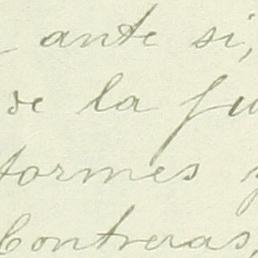 ante si,
de la fu
formes y
Contreras,